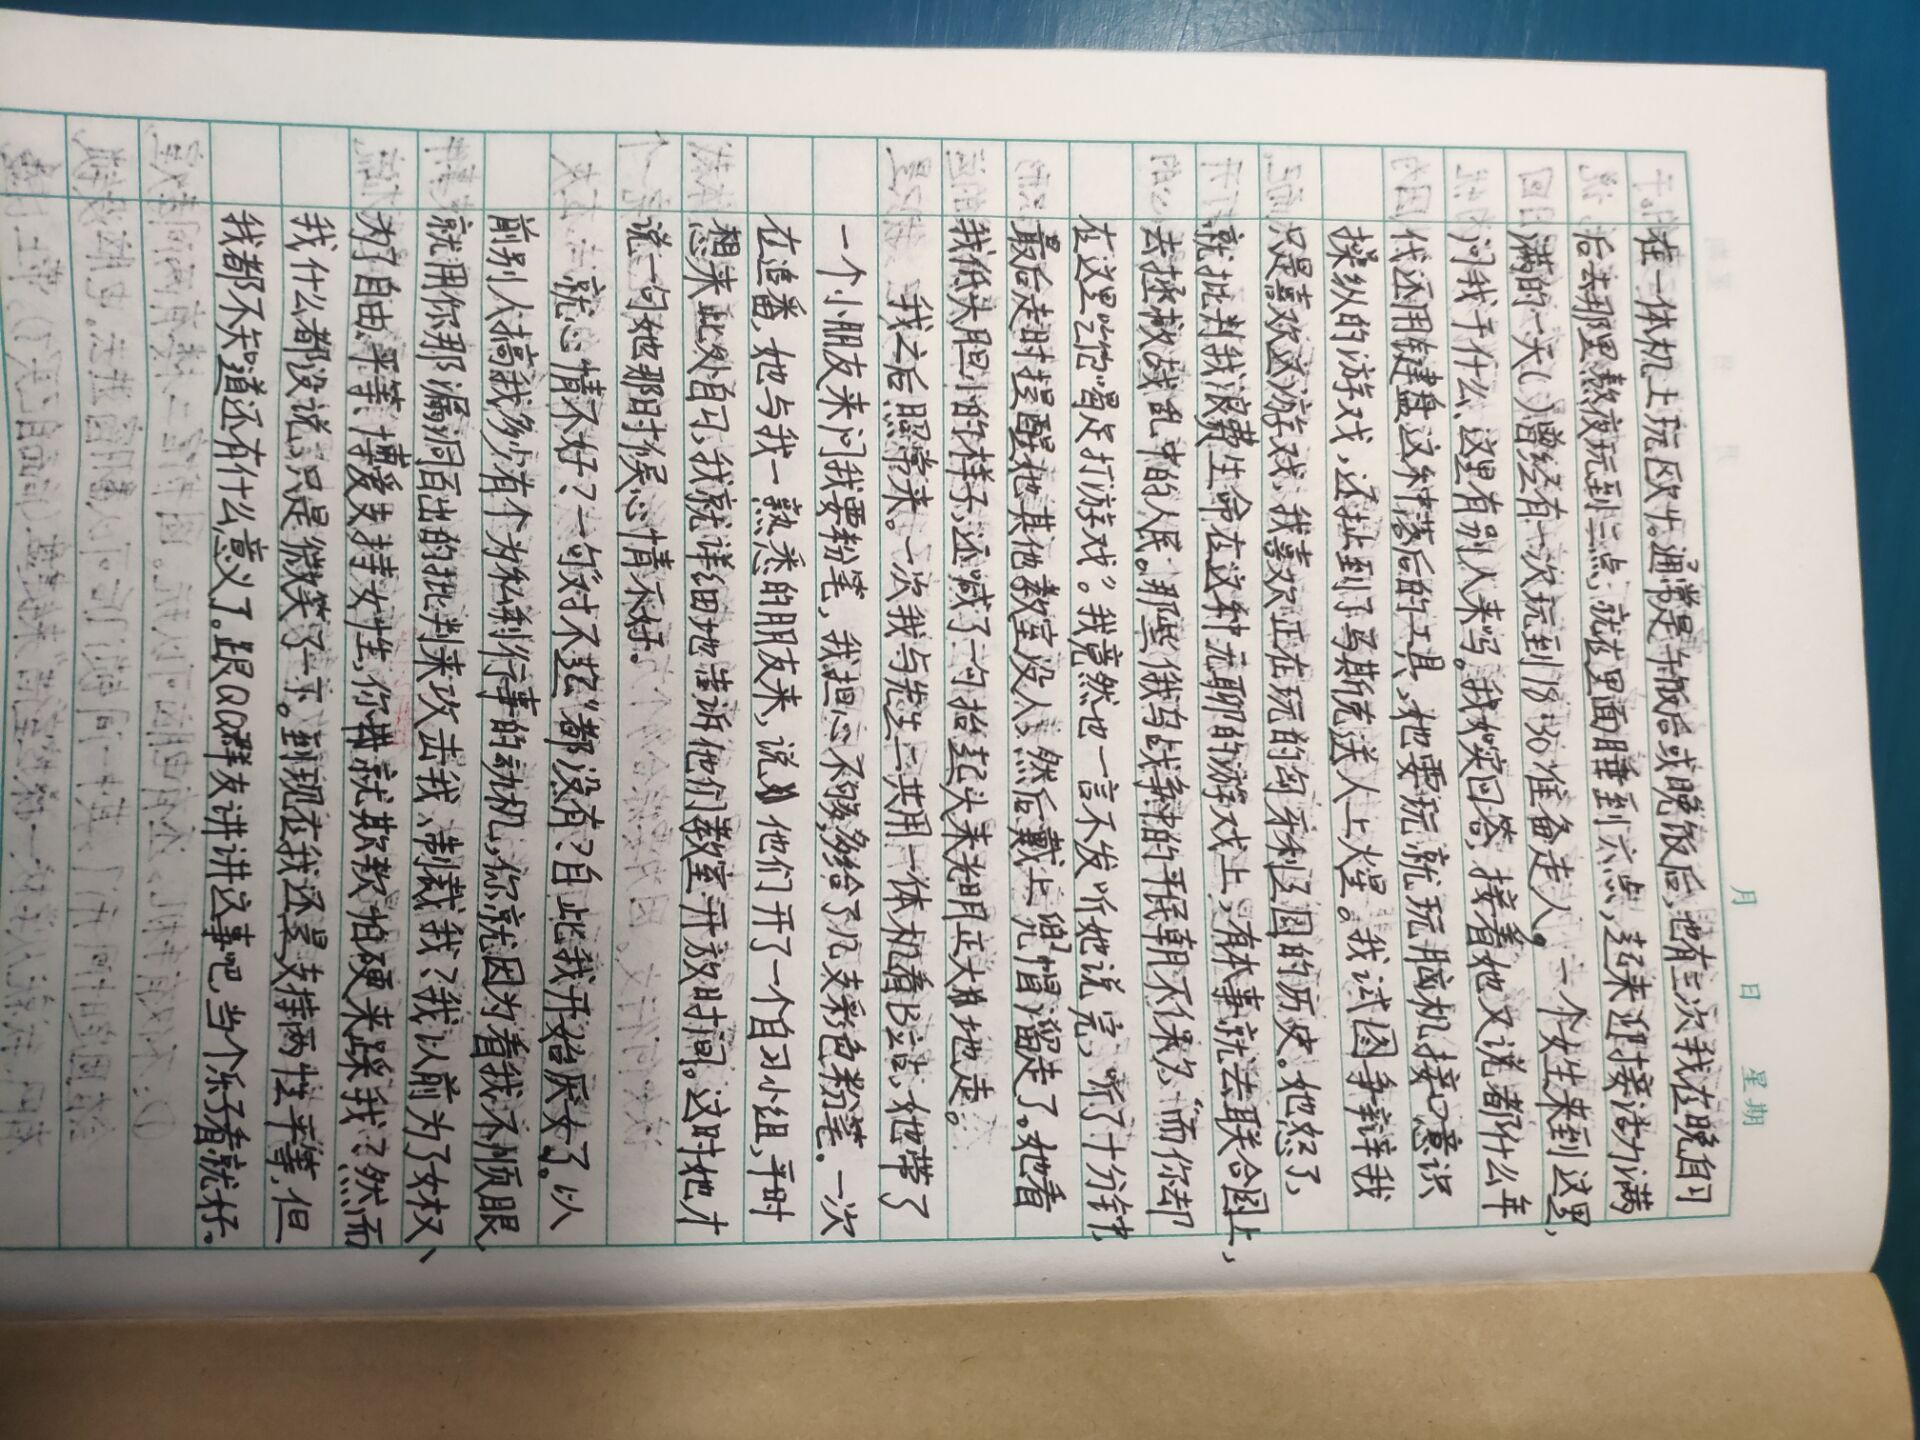 月 日 星期
在一体机上玩欧牛。通常是午饭后或晚饭后,也有三次我在晚自习
后去那里熬夜玩到三点,就在里面睡到六点,起来迎接活力满
满的一天(.)曾经有一次玩到18:30准备走人。一个女生来到这里,
问我干什么、这里有别人来吗。我如实回答,接着她又说都什么年
代还用键盘这种落后的工具,想要玩就玩脑机接口意识
操纵的游戏,还扯到了马斯克送人上火星。我试图争辩我
只是喜欢这游戏,我喜欢正在玩的匈牙利这国的历史。她怒了,
就批判我浪费生命在这种无聊的游戏上,有本事就去联合国上,
去拯救战乱中的人民。那些俄乌战争中的平民朝不保夕,“而你却
在这里只顾打游戏”。我竟然也一言不发听她说完,听了十分钟,
最后走时提醒她其他教室没人,然后戴上兜帽溜走了。她看
我低头胆小的样子,还喊了一句抬起头来光明正大地走。
我之后照常来。一次我与先生二共用一体机看B站,她带了
一个小朋友来问我要粉笔,我担心不够,多给了几支彩色粉笔。一次
在追番,她与我一熟悉的朋友来,说他们开了一个自习小组,平时
想来此处自习,我就详细地告诉他们教室开放时间。这时她才
说一句她那时候心情不好。
就心情不好?一句“对不起”都没有?自此我开始厌女了。以
前别人搞我多少有个为私利行事的动机,你就因为看我不顺眼
就用你那漏洞百出的批判来攻击我、制裁我?我以前为了女权、
为了自由、平等、博爱支持女性,你就欺软怕硬来踩我?然而
我什么都没说,只是微笑了一下。到现在我还是支持两性平等,但
我都不知道还有什么意义了。跟QQ群友讲讲这事吧,当个乐子看就好。